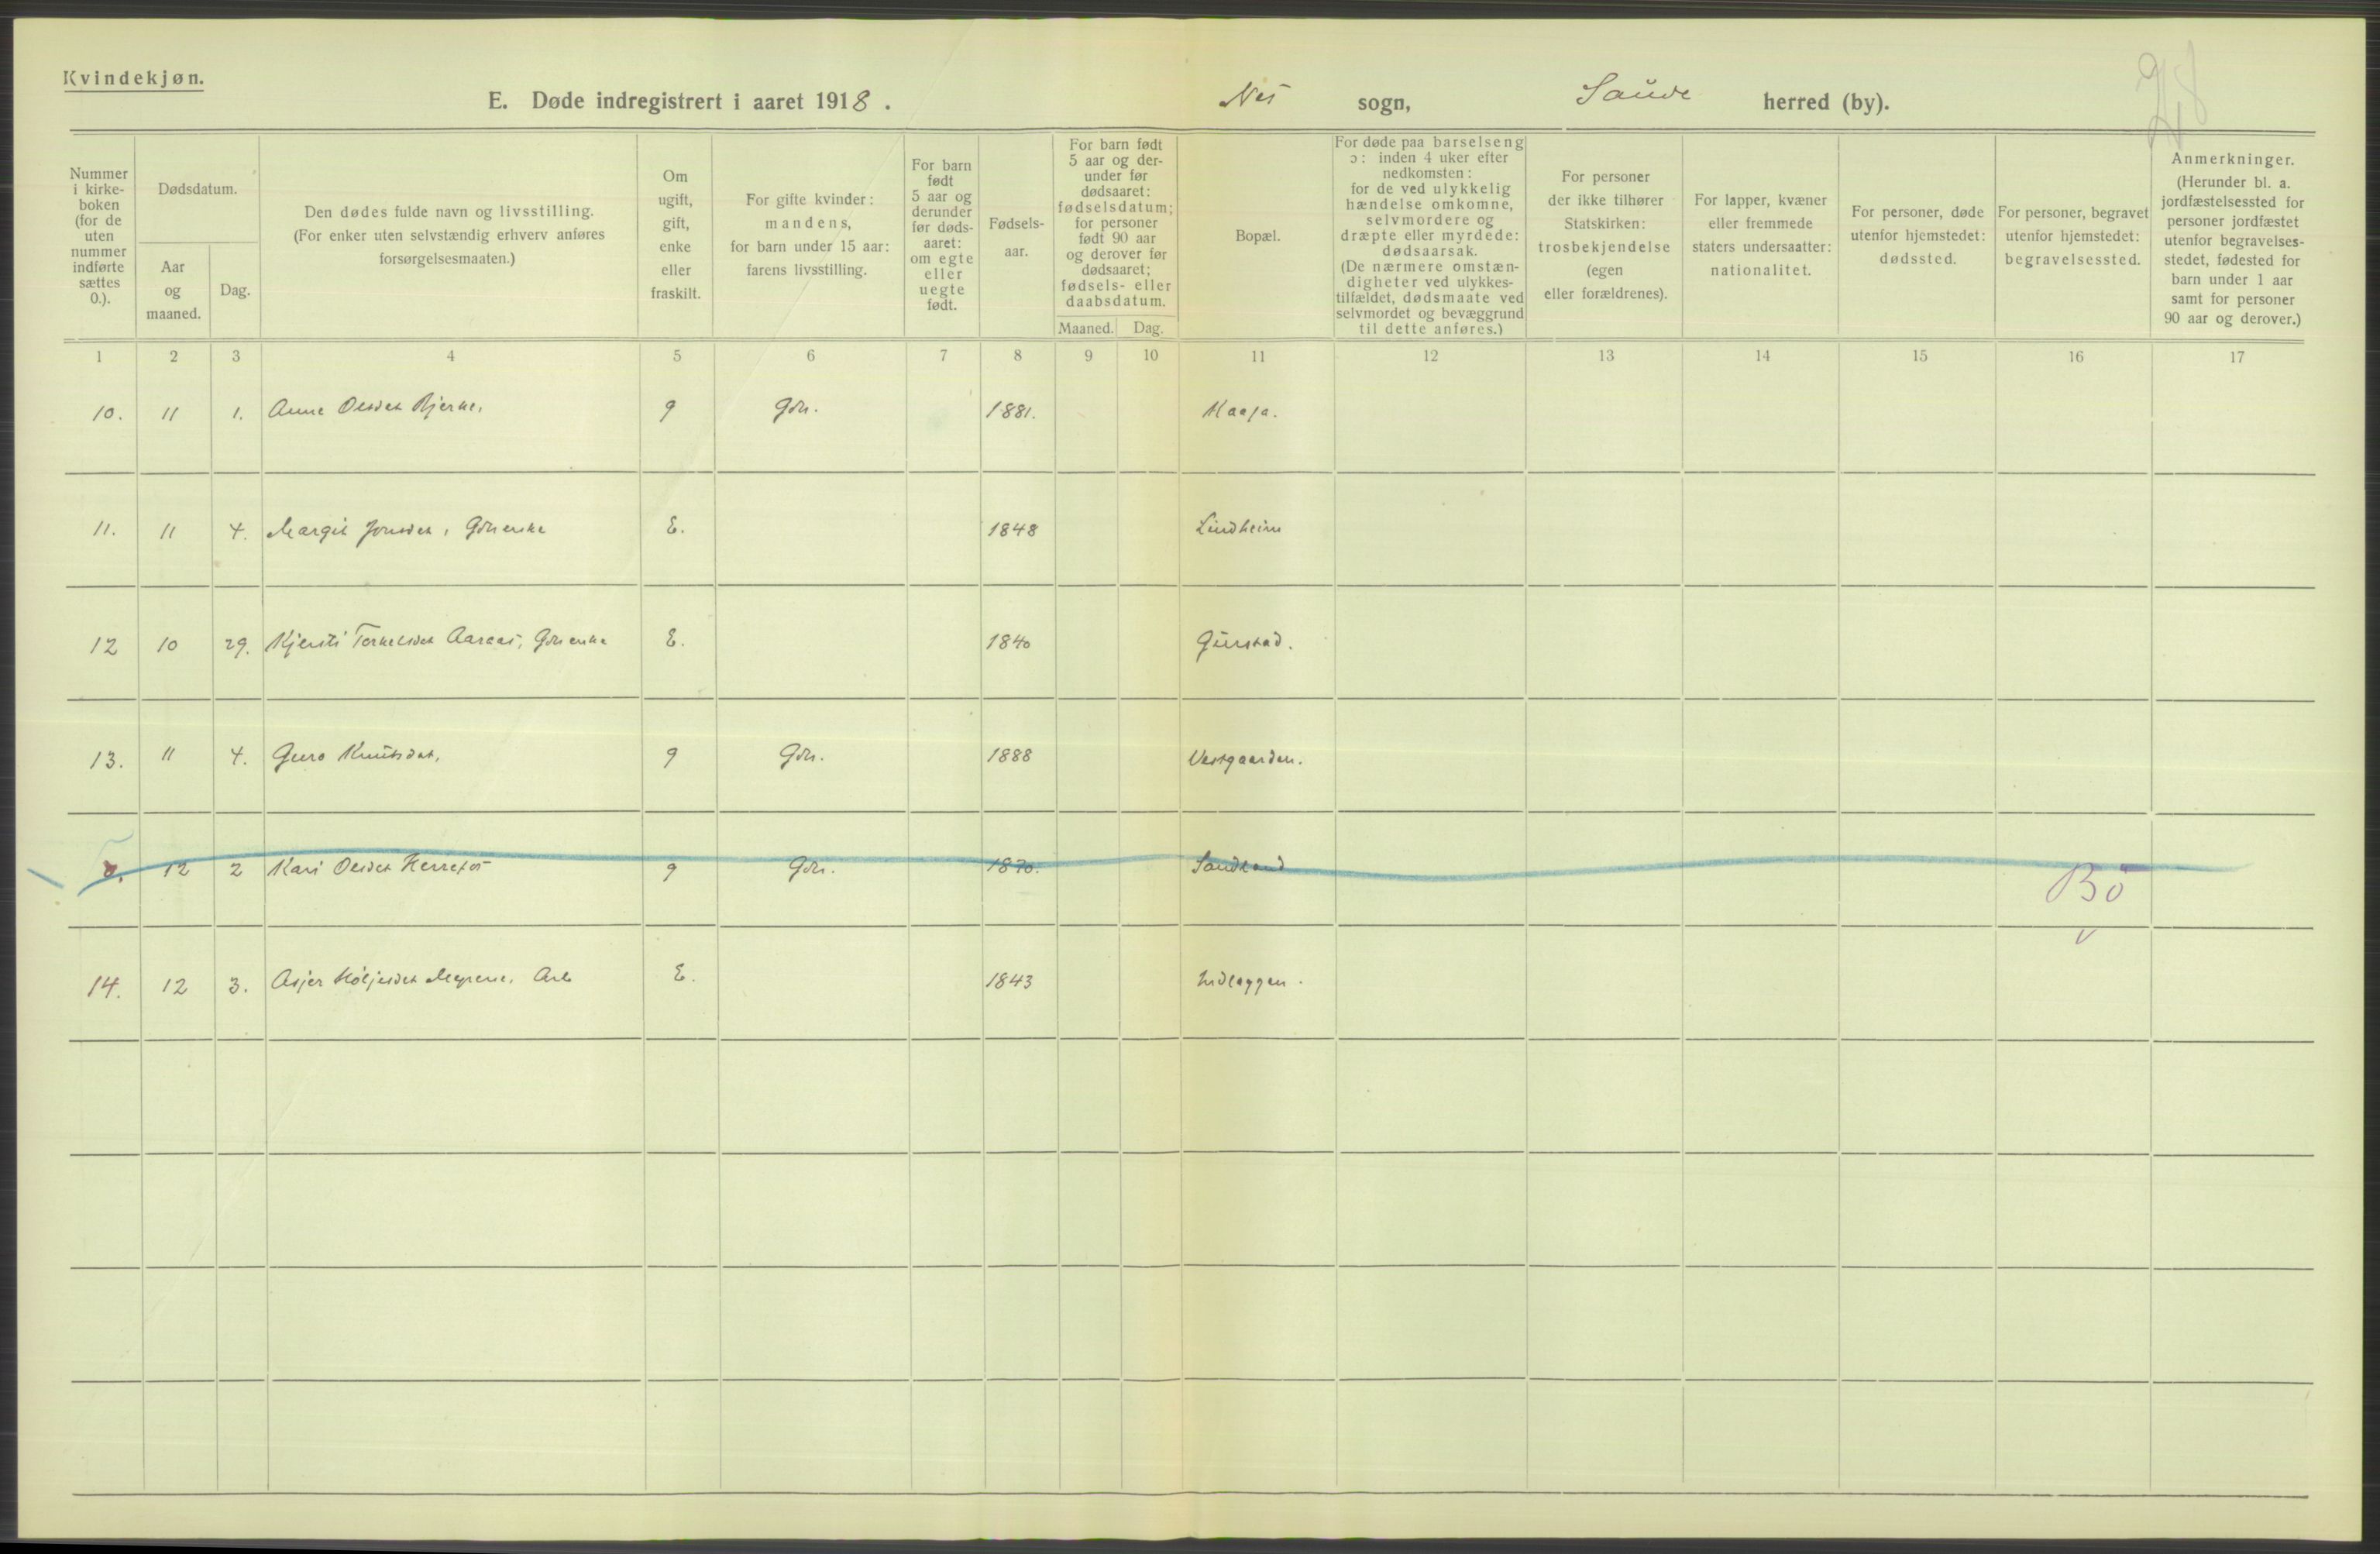 Kvindekjøn.
E. Døde indregistrert i aaret 1918.
Nes sogn, Saude herred (by).
28
Nummer i kirke-boken (for de uten nummer indførte sættes 0.).
Dødsdatum.
Aar og maaned.
Dag.
Den dødes fulde navn og livsstilling.
(For enker uten selvstændig erhverv anføres forsørgelsesmaaten.)
Om ugift, gift, enke eller fraskilt.
For gifte kvinder: mandens, for barn under 15 aar: farens livsstilling.
For barn født 5 aar og derunder før døds-aaret: om egte eller uegte født.
Fødsels-aar.
For barn født 5 aar og der-under før dødsaaret: fødselsdatum; for personer født 90 aar og derover før dødsaaret; fødsels- eller daabsdatum.
Maaned. Dag.
Bopæl.
For døde paa barselseng ɔ: inden 4 uker efter nedkomsten: for de ved ulykkelig hændelse omkomne, selvmordere og dræpte eller myrdede: dødsaarsak. (De nærmere omstæn-digheter ved ulykkes-tilfældet, dødsmaate ved selvmordet og bevæggrund til dette anføres.)
For personer der ikke tilhører Statskirken: trosbekjendelse (egen eller forældrenes).
For lapper, kvæner eller fremmede staters undersaatter: nationalitet.
For personer, døde utenfor hjemstedet: dødssted.
For personer, begravet utenfor hjemstedet: begravelsessted.
Anmerkninger. (Herunder bl. a. jordfæstelsessted for personer jordfæstet utenfor begravelses-stedet, fødested for barn under 1 aar samt for personer 90 aar og derover.)
1 2 3 4 5 6 7 8 9 10 11 12 13 14 15 16 17
10. 11 1. Anne Olsdat Bjerke, g Gdr. 1881. Kaasa.
11. 11 4. Margit Jonsdat, Gdrenke E. 1848 Lindheim
12 10 29. Kjersti Torkelsdat Aaraas, Gdrenke E. 1840 Gurstad.
13. 11 4. Guro Knutsdat, g Gdr. 1888 Vestgaarden.
0. 12 2 Kari Olsdat g Gdr. 1870. Sandland Bö
14. 12 3. Asjer Høljesdat Myrene, Arb E. 1843